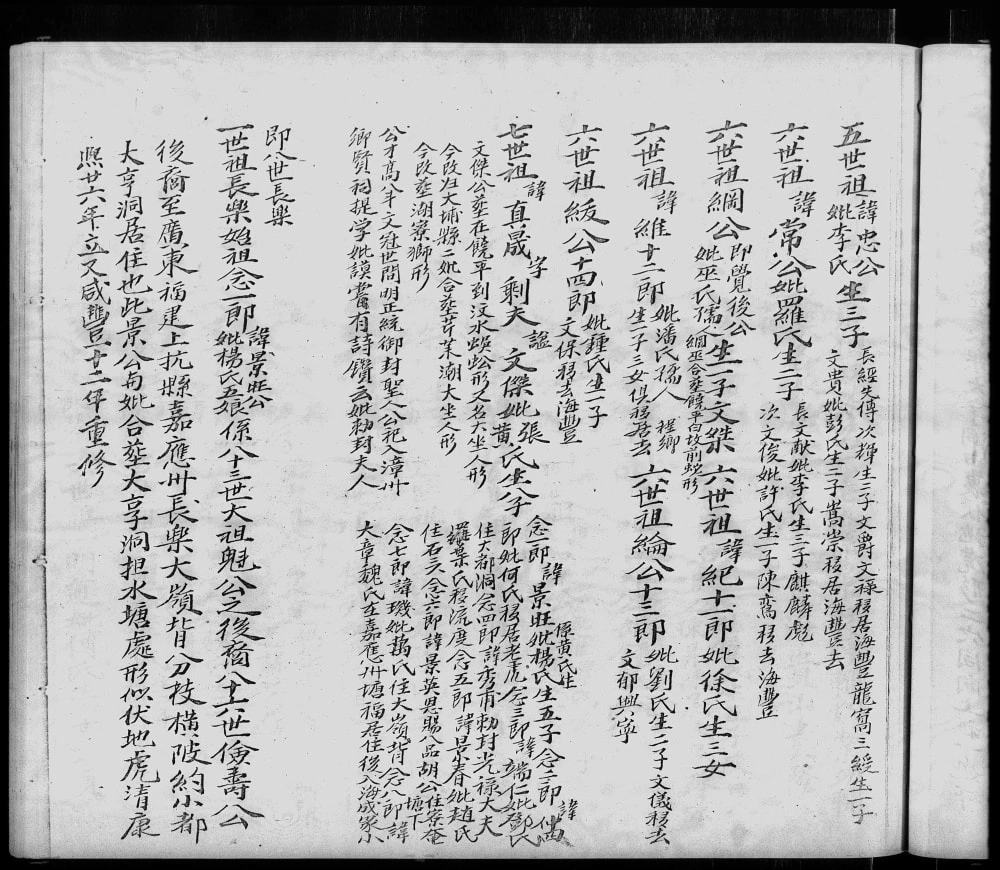 五世祖諱忠公妣李氏生三子長經失傳次緯生二子文爵文祿移居海豐龍窩三綬生一子
文貴妣彭氏生二子嵩崇移居海豐去
六世祖諱常公妣羅氏生二子長文献妣李氏生三子麒麟彪
次文俊妣許氏生一子陳鸞移去海豐
六世祖綱公即覺後公妣巫氏孺人緬巫合塟饒平白坟前蛇形生一子文桀
六世祖諱紀十一郎妣徐氏生三女
六世祖諱維十二郎妣潘氏孺人生一子三女俱移居去程鄉
六世祖綸公十三郎妣劉氏生二子文儀移去
文郁興寧
六世祖緩公十四郎妣鍾氏生一子文保移去海豐
七世祖諱真晟字剩夫諡文傑妣張黃氏生八子
念一郎諱景旺妣楊氏生五子係黃氏生念二郎諱
文傑公塟在饒平到汶水蜈蚣形又名大坐人形
即妣何氏移居老虎念三郎諱端仁妣鄧氏
今改在大埔縣二妣合塟芹菜湖大坐人形
住大都洞念四郎諱秀甫勅封光祿大夫
今改塟湖寮獅形
葉氏移流度念五郎諱景春妣趙氏
公才高八斗文冠世間明正統御封聖人公祀入漳州
住石久念六郎諱景英恩賜八品胡公住寮奄塘下
鄉賢祠提学妣謨嘗有詩鑽云妣勅封夫人
念七郎諱璣妣萬氏住大嶺背念八郎諱
大章魏氏在嘉應州塘福居住後入海成家小
即八世長樂
一世祖長樂始祖念一郎諱景旺公妣楊氏五娘係八十三世大祖魁公之後裔八十六世儉壽公
後裔至廣東福建上抗縣嘉應州長樂大嶺背分枝橫陂約小都
大亨洞居住也此景公与妣合塟大亨洞担水塘處形似伏地虎清康
熙廿六年立又咸豐十二年重修